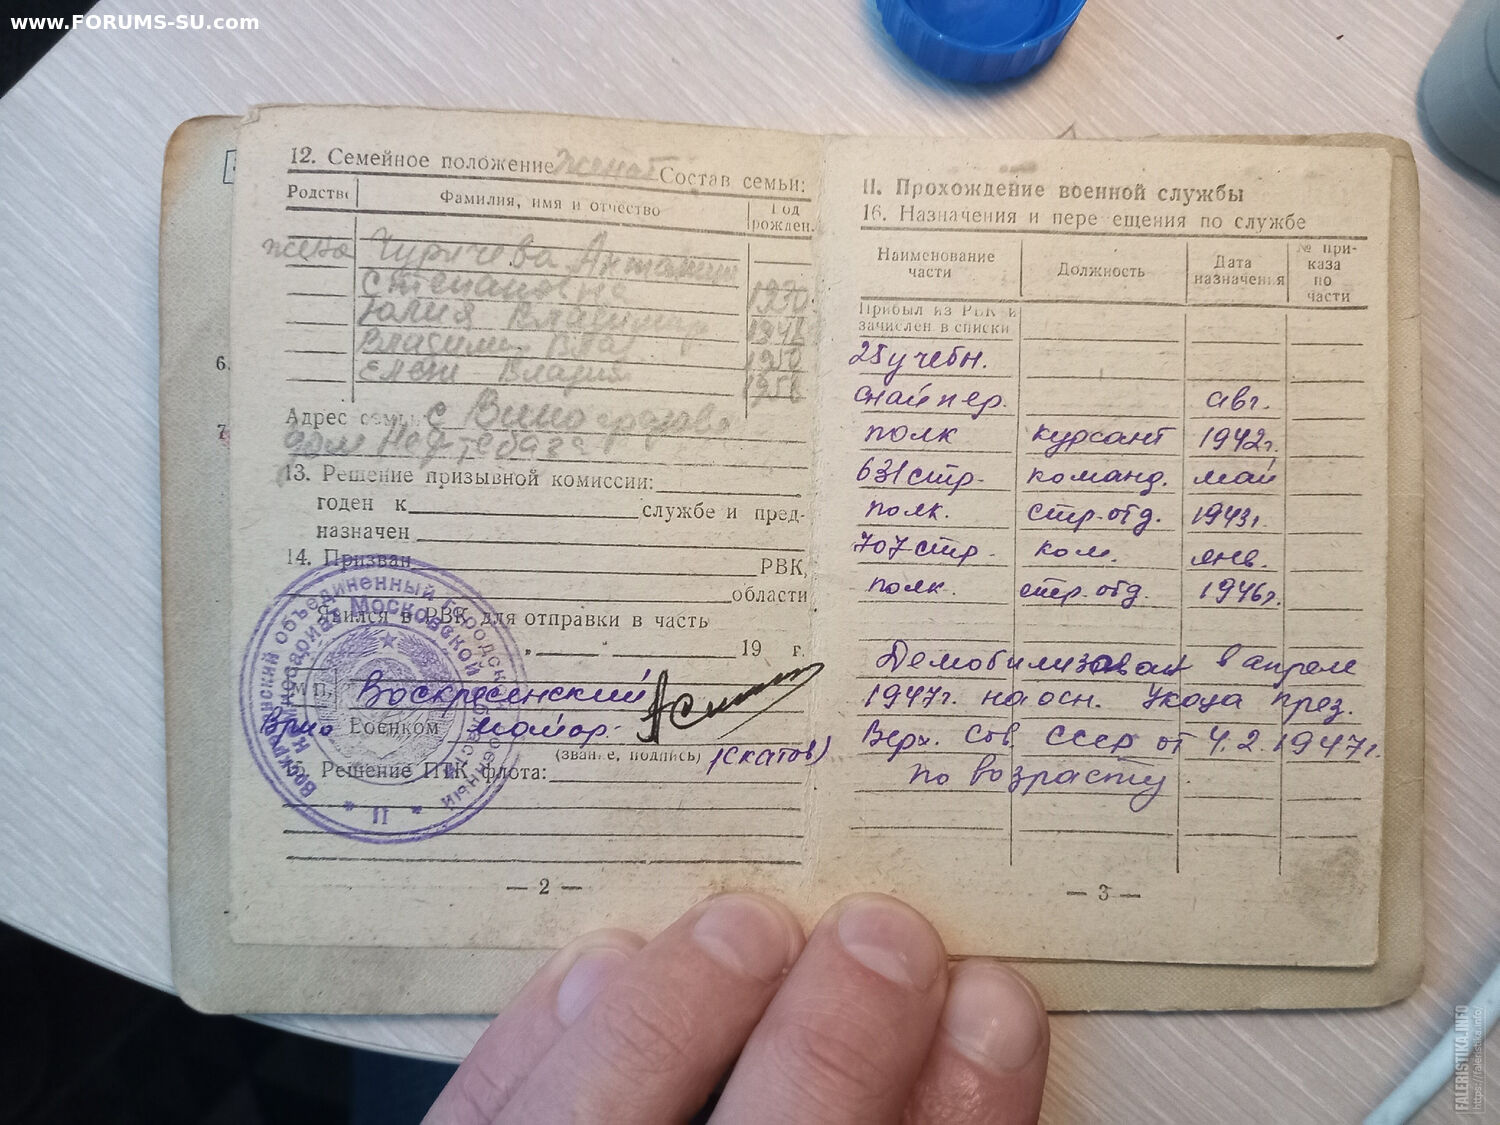 www.FORUMS-SU.com
12. Семейное положение женат Состав семьи:
Родстве
Фамилия, имя и отчество
Год рожден.
жена
Степановна 1930
Юлия Владимир 1948
Владимир Вла 1950
Елена 1958
Адрес семьи: с Виноградово
дом Нефтебаза
13. Решение призывной комиссии:
годен к службе и пред-
назначен
14. Призван РВК,
области
Явился в РВК для отправки в часть
19 г.
М.П. Воскресенский
Врио Военком майор.
(звание, подпись) (Скатов)
Решение ПТК флота:
— 2 —
6.
7.
II. Прохождение военной службы
16. Назначения и пере ещения по службе
Наименование части
Должность
Дата назначения
№ при-каза по части
Прибыл из РВК и
зачислен в списки
25 учебн.
снайпер. авг.
полк курсант 1942г.
631 стр. команд. май
полк. стр. отд. 1943г.
707 стр. ком. янв.
полк. стр. отд. 1946г.
Демобилизован в апреле
1947г. на осн. Указа през.
Верх. Сов. СССР от 4.2.1947г.
по возрасту
— 3 —
FALERISTIKA.INFO
https://faleristika.info/